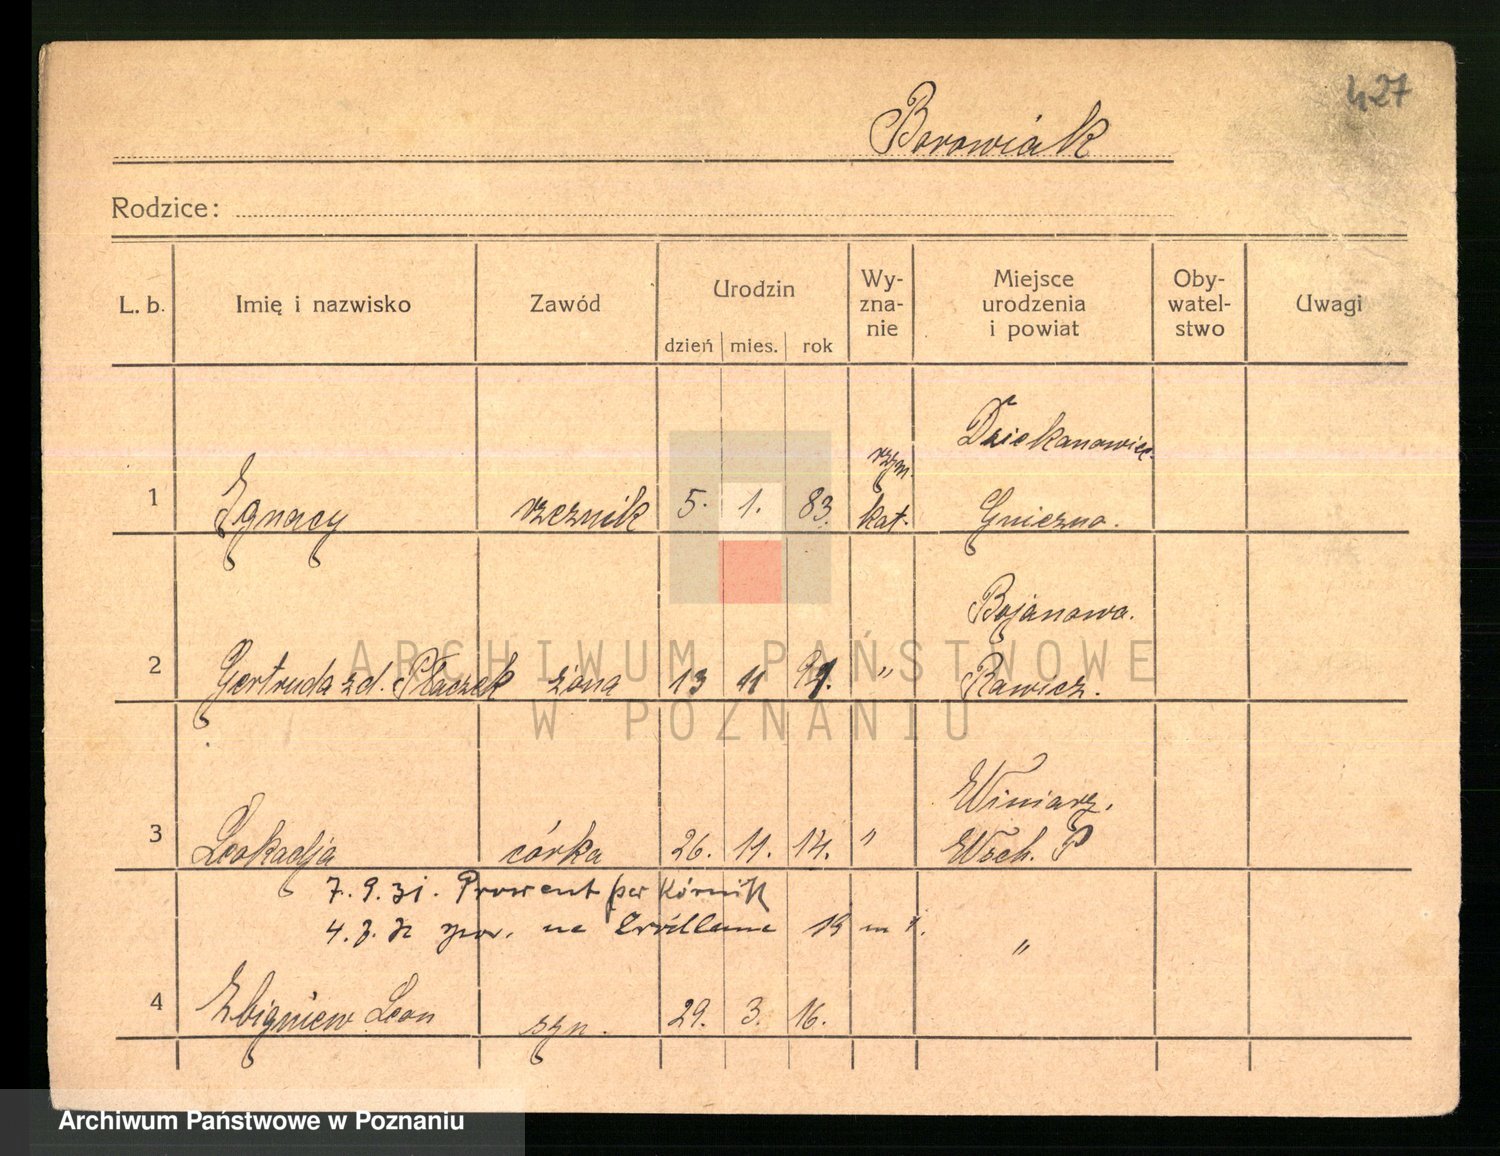 427
Borowiak
Rodzice:
L. b. Imię i nazwisko Zawód Urodzin Wy-zna-nie Miejsce urodzenia i powiat Oby-watel-stwo Uwagi
dzień mies. rok
1 Ignacy rzeznik 5. 1. 83. rzym. kat. Dziekanowice Gniezno.
2 Gertruda zd. Płaczek żona 13 11 91. " Bojanowo. Rawicz.
3 Leokadja córka 26. 11. 14. " Winiary. Wsch. P
7.9.31. Prowent per Kórnik
4. na 19 m
4 Zbigniew Leon syn. 29. 3. 16. "
ARCHIWUM PAŃSTWOWE
W POZNANIU
Archiwum Państwowe w Poznaniu